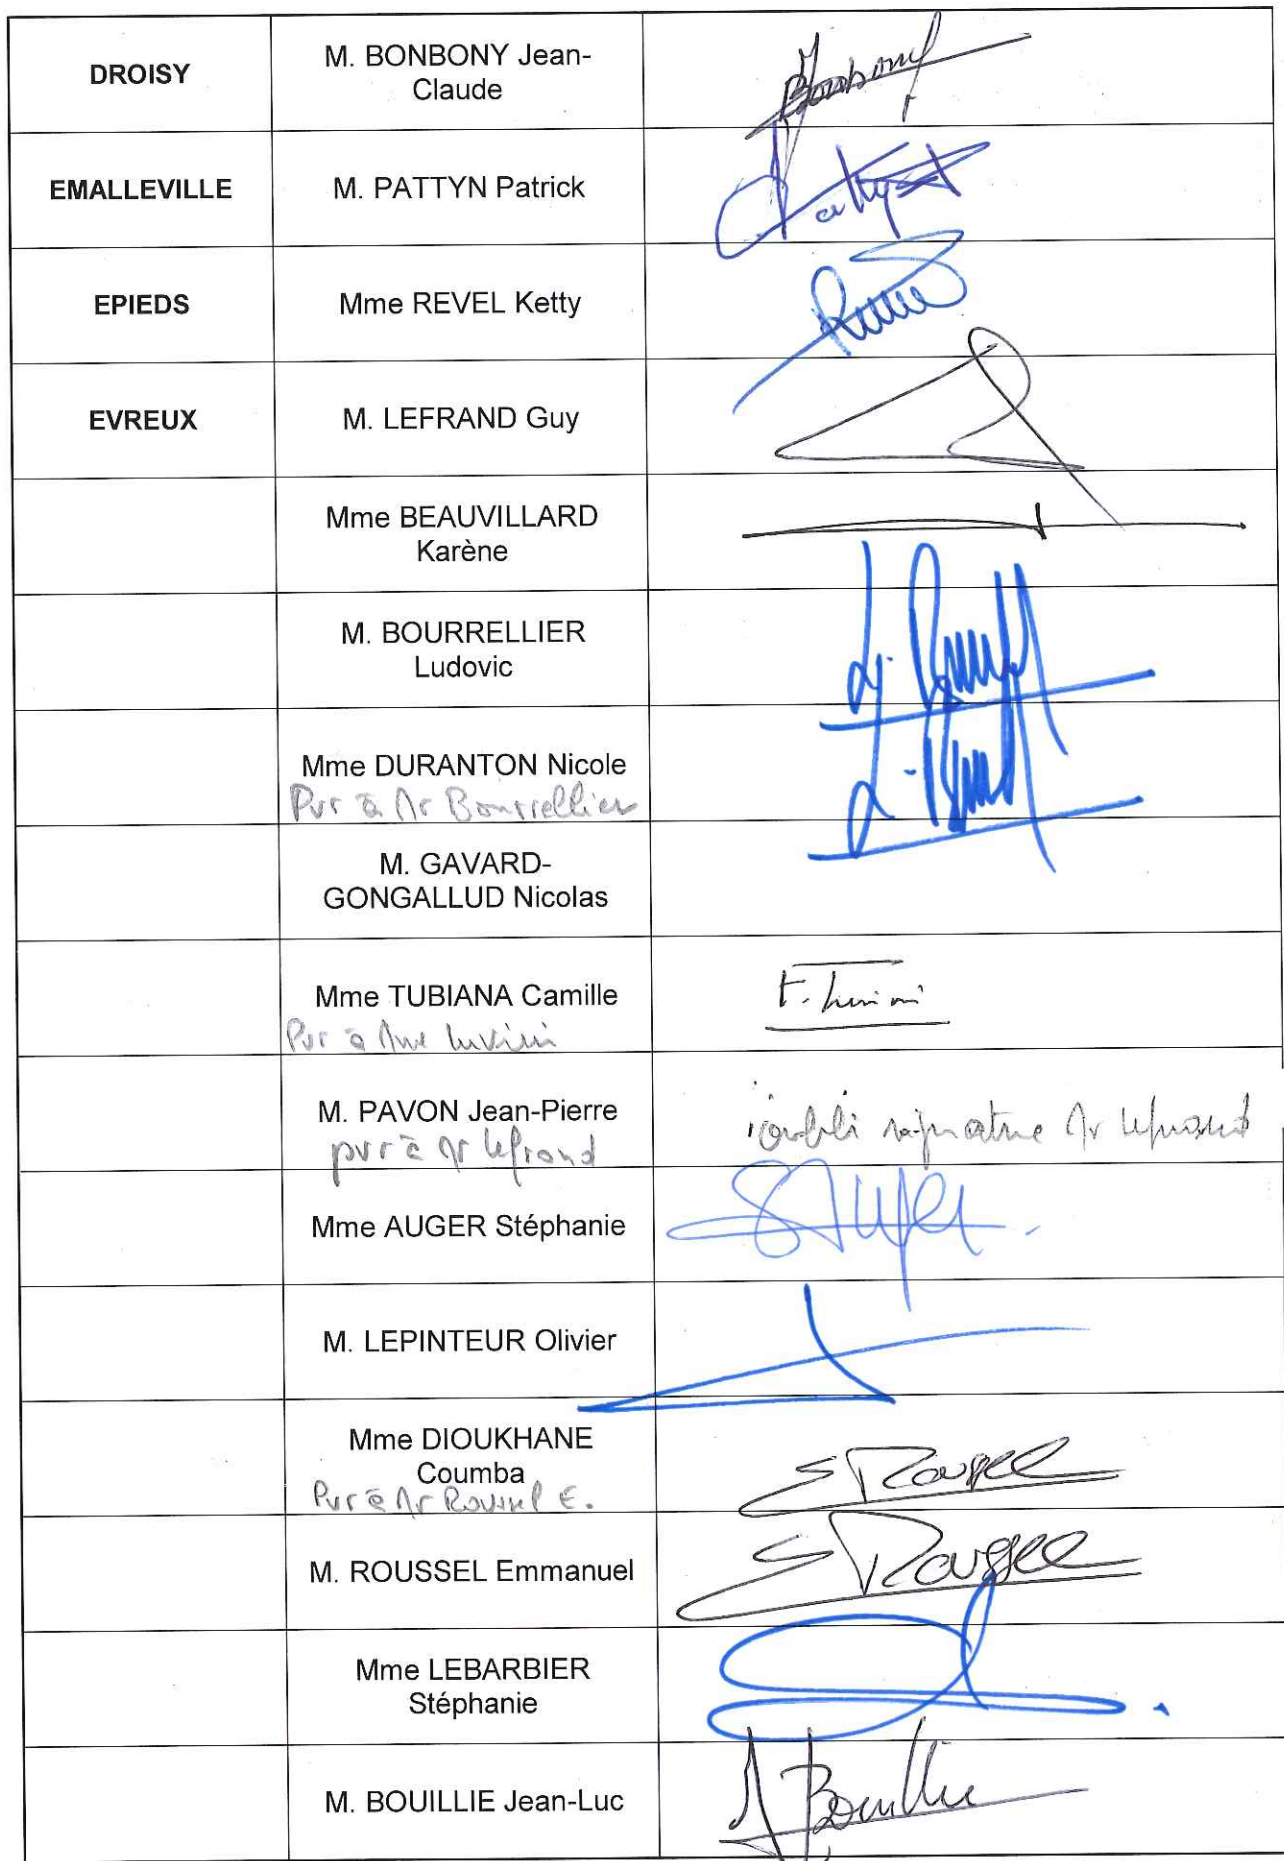 DROISY
M. BONBONY Jean-
Claude
EMALLEVILLE
M. PATTYN Patrick
EPIEDS
Mme REVEL Ketty
EVREUX
M. LEFRAND Guy
Mme BEAUVILLARD
Karène
M. BOURRELLIER
Ludovic
Mme DURANTON Nicole
Pvr à Mr Bourrellier
M. GAVARD-
GONGALLUD Nicolas
Mme TUBIANA Camille
Pvr à Mme Luvini
F. Luvini
M. PAVON Jean-Pierre
pvr à Mr Lefrand
signature Mr Lefrand
Mme AUGER Stéphanie
M. LEPINTEUR Olivier
Mme DIOUKHANE
Coumba
Pvr à Mr Roussel E.
E Roussel
M. ROUSSEL Emmanuel
E Roussel
Mme LEBARBIER
Stéphanie
M. BOUILLIE Jean-Luc
Bouillie